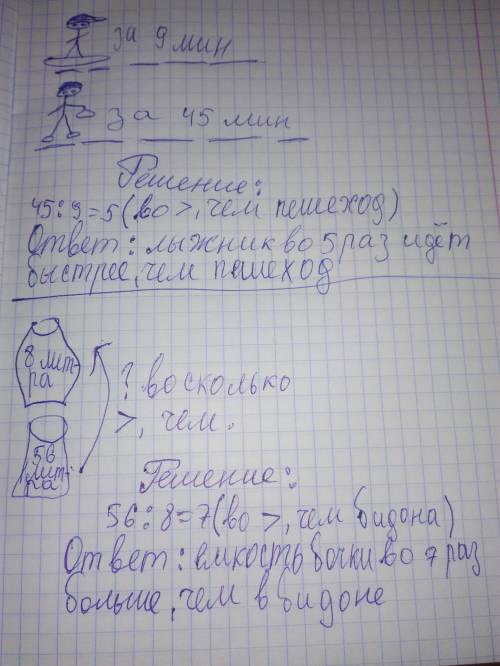 за 9 мин
за 45 мин
Решение:
45:9=5(во >, чем пешеход)
Ответ: лыжник во 5 раз идёт
быстрее, чем пешеход
8 лит-
ра
? во сколько
>, чем.
56
лит-
ра
Решение:
56:8=7(во >, чем бидона)
Ответ: емкость бочки во 7 раз
больше, чем в бидоне